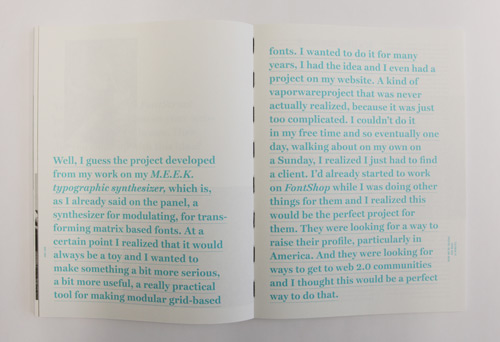 Well, I guess the project developed
from my work on my M.E.E.K.
typographic synthesizer, which is,
as I already said on the panel, a
synthesizer for modulating, for trans-
forming matrix based fonts. At a
certain point I realized that it would
always be a toy and I wanted to
make something a bit more serious,
a bit more useful, a really practical
tool for making modular grid-based
fonts. I wanted to do it for many
years, I had the idea and I even had a
project on my website. A kind of
vaporwareproject that was never
actually realized, because it was just
too complicated. I couldn't do it
in my free time and so eventually one
day, walking about on my own on
a Sunday, I realized I just had to find
a client. I'd already started to work
on FontShop while I was doing other
things for them and I realized this
would be the perfect project for
them. They were looking for a way to
raise their profile, particularly in
America. And they were looking for
ways to get to web 2.0 communities
and I thought this would be a perfect
way to do that.